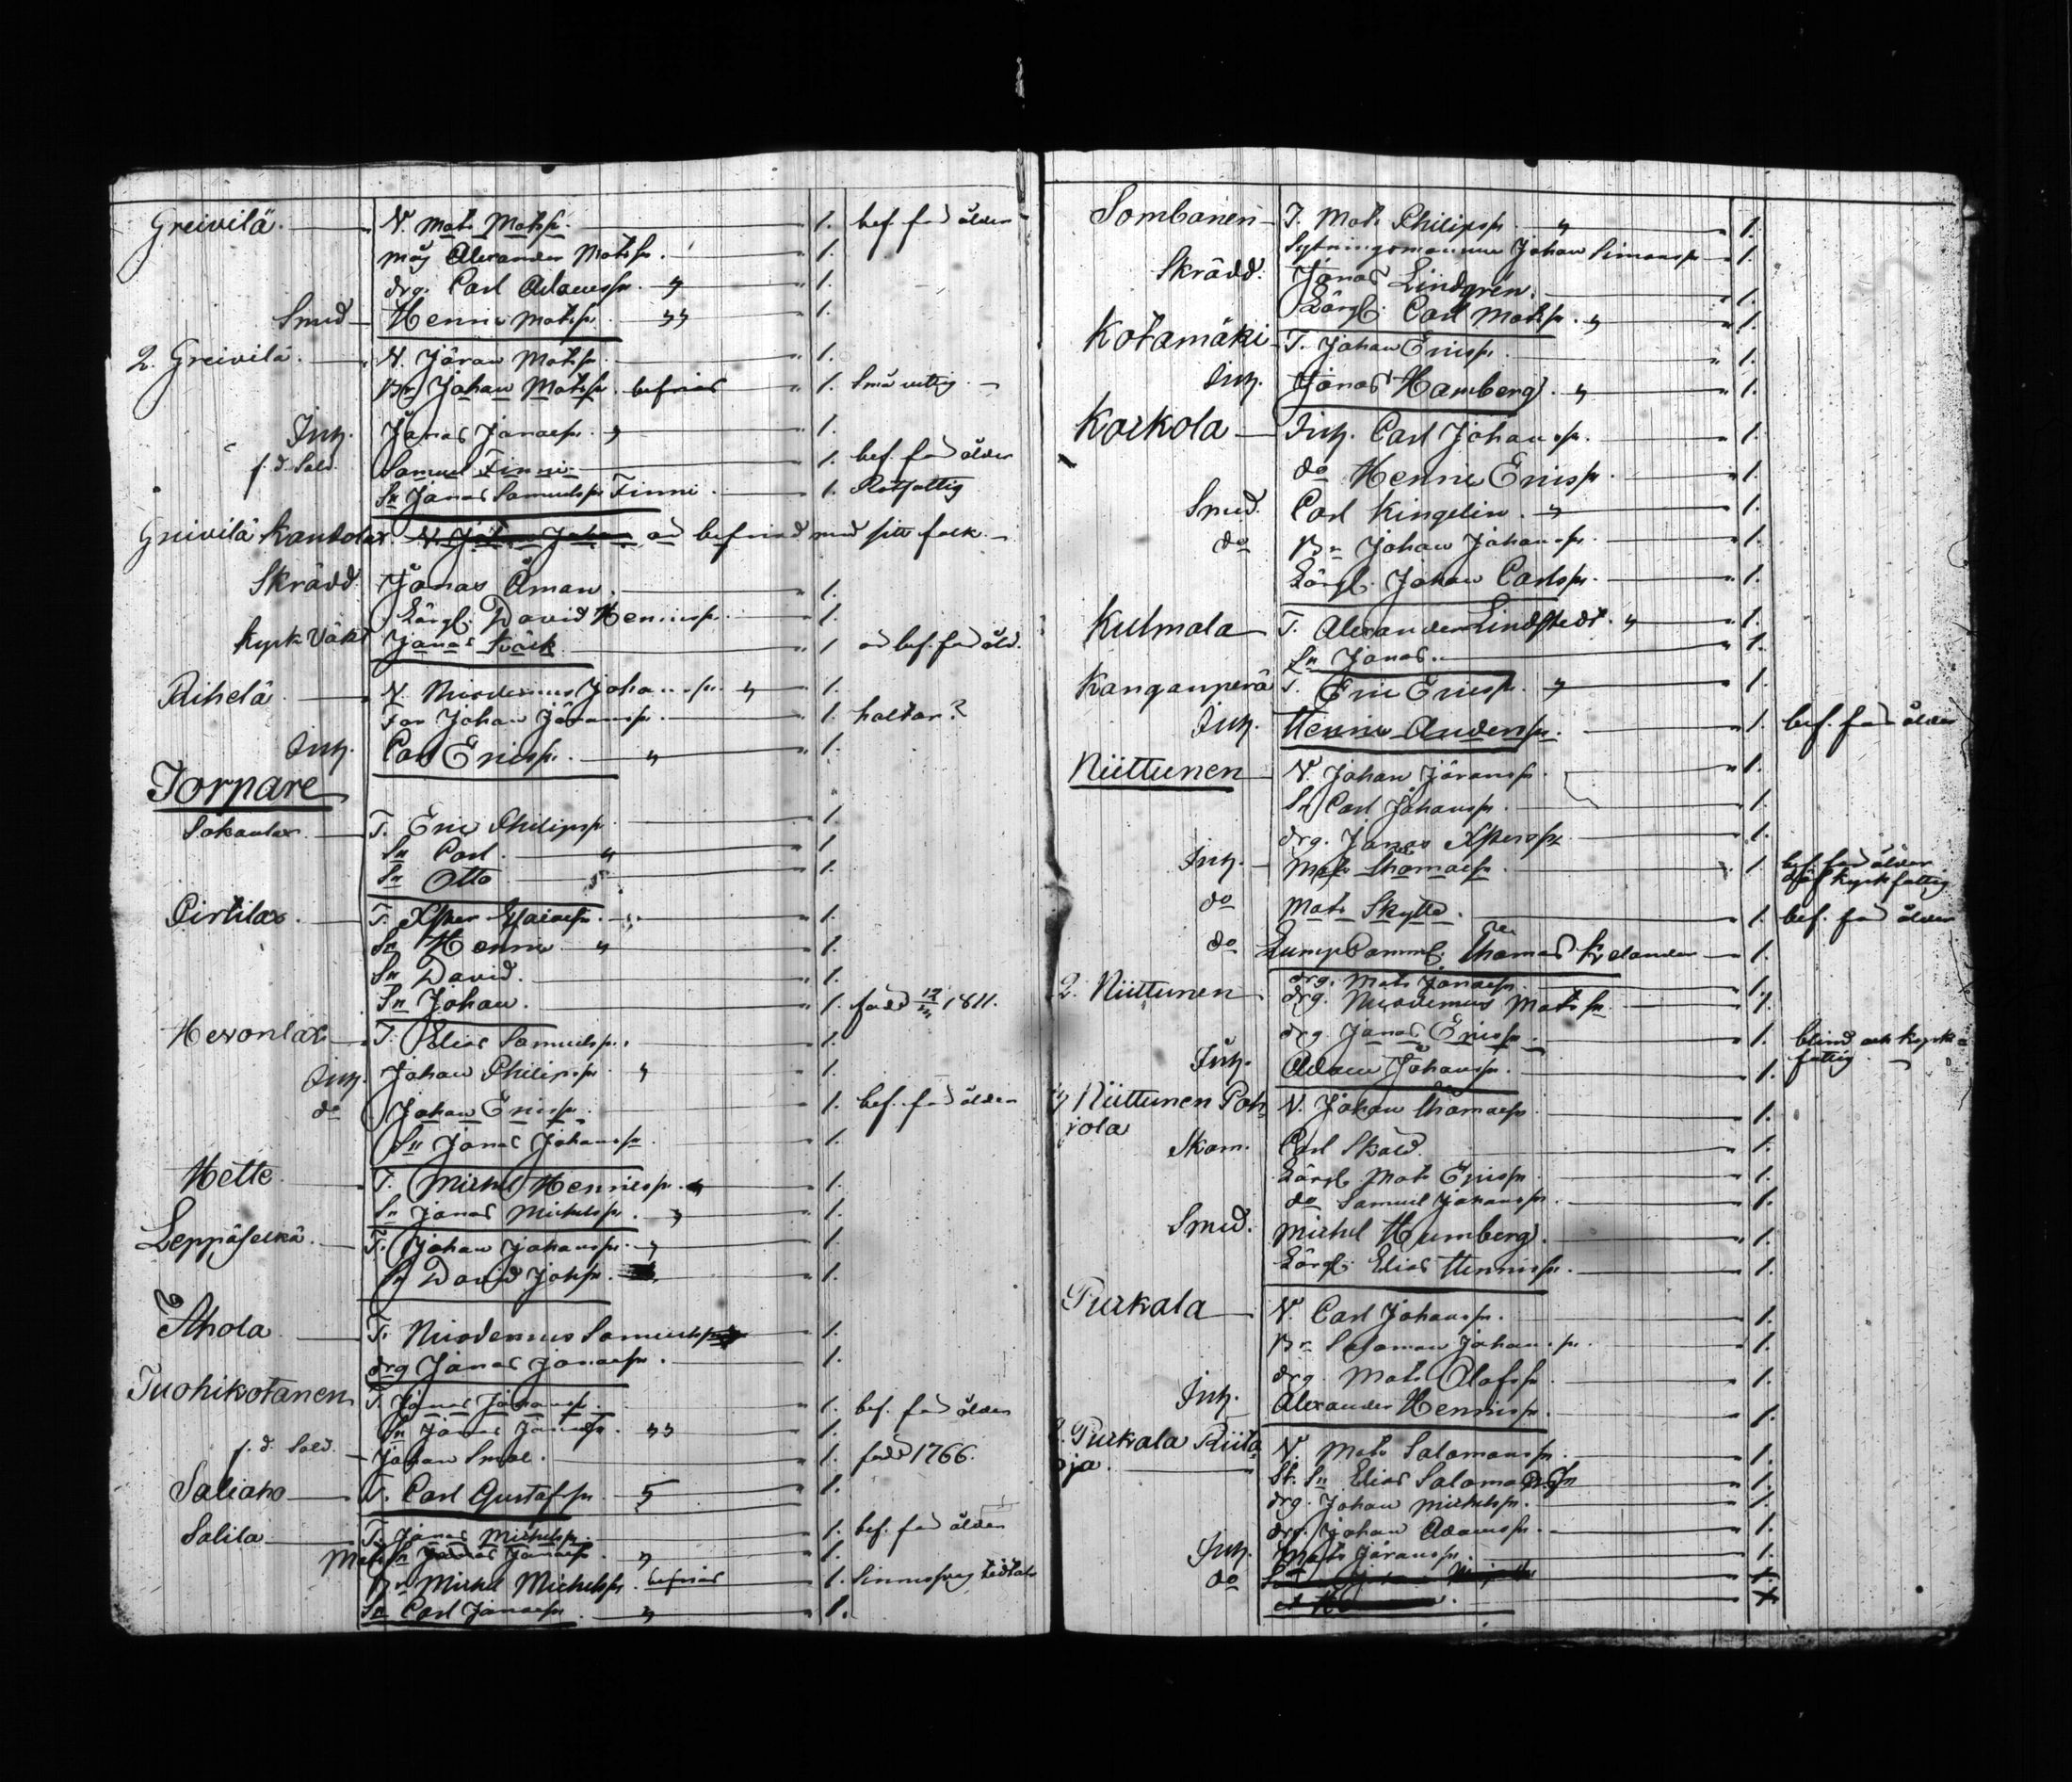 Greivilä. N. Mats Matsn. 1. bef. för ålder
måg Alexander Matsn. 1.
drg. Carl Adamsn. 1.
Smed Henric Matsn. 1.
2. Greivilä. N. Jöran Matsn. 1.
Br Johan Matsn. befriad 1. Små vettig.
Inh. Jonas Jonaesn. 1.
f. d. Sold. Samuel Finni. 1. bef. för ålder
Sn Jonas Samuelsn Finni. 1. Rotfattig
Greivilä Kandolax. N. Johan är befriad med sitt folk.
Skrädd. Jonas Åman. 1.
Lärgl. David Henricsn. 1.
Kyrk Väkt Jonas 1 är bef. för åld.
Rihelä N. Nicodemus Johansn. 1.
Far Johan Jöransn. 1. haltar?
Inh. Carl Ericsn. 1.
Torpare
Sokaulax. T. Eric Philipsn 1
Sn Carl. 1
Sn Otto 1
Pirtilax. T. Xster Esaiaesn. 1.
Sn Henric 1.
Sn David. 1.
Sn Johan. 1. född 12/ 1811.
Hevonlax T. Elias Samuelsn. 1
Inh. Johan Philipsn. 1
do Johan Ericsn. 1. bef. för ålder
Sn Jonas Johansn 1.
Hette T. Michel Henricsn. 1.
Sn Jonas Michelsn. 1.
Leppäselkä. T. Johan Johansn. 1
Sn David Johsn. 1.
Ahola T. Nicodemus Samuelsn 1.
drg Jonas Jonaesn. 1.
Tuohikotanen T. Jonas Johansn. 1. bef. för ålder
Sn Jonas Jonaesn. 1.
f. d. Sold. Johan Smal. 1. född 1766.
Saliaho N. Carl Gustafsn. 1.
Salila T. Jonas Michelsn. 1. bef. för ålder
Mats Sn Jonas Jonaesn. 1.
Br Michel Michelsn. befriad 1. Sinnesswag
Sn Carl Jonaesn 1.
Sombanen T. Mats Philipsn 1.
Sytningsmannen Johan Simonsn 1.
Skrädd. Jonas Lindgrén. 1.
Lärgl. Carl Matsn. 1.
Kotamäki T. Johan Ericsn. 1.
Inh. Jonas Hamberg. 1.
Korkola Inh. Carl Johansn. 1.
do Henric Ericsn. 1.
Smed. Carl Kingelin. 1.
do Br Johan Johansn. 1.
Lärgl. Johan Carlsn. 1.
Kulmala T. Alexander Lindstedt. 1.
Sn Jonas. 1.
Kanganperä T. Eric Ericsn. 1.
Inh. Henric Andersn. 1. bef. för ålder
Niittunen N. Johan Jöransn. 1.
Sn Carl Johansn. 1.
drg. Jonas Xstersn 1.
Inh. Mats Thomaesn. 1. bef. för ålder och kyrkfattig
do Mats Skyttä. 1. bef. för ålder
do Lump Saml. Thomas 1.
2. Niittunen drg. Mats Jonaesn. 1.
drg. Nicodemus Matsn. 1.
drg. Jonas Ericsn. 1. blind och kyrk
Inh. Adam Johansn. 1. fattig
Niittunen Poh N. Johan Thomaesn 1.
jola
Skom. Carl Sköld. 1.
Lärgl. Mats Ericsn. 1.
do Samuel Johansn. 1.
Smed. Michel Humberg. 1.
Lärgl. Elias Henricsn. 1.
Purkala N. Carl Johansn. 1.
Br Salomon Johansn. 1.
drg. Mats Olofsn. 1.
Inh. Alexander Henricsn. 1.
2. Purkala Riita N. Mats Salomonsn 1.
oja. St. Sn Elias Salomonsn 1.
drg. Johan Michelsn. 1.
drg. Johan Adamsn. 1.
Inh. Mats Jöransn. 1.
do 1.